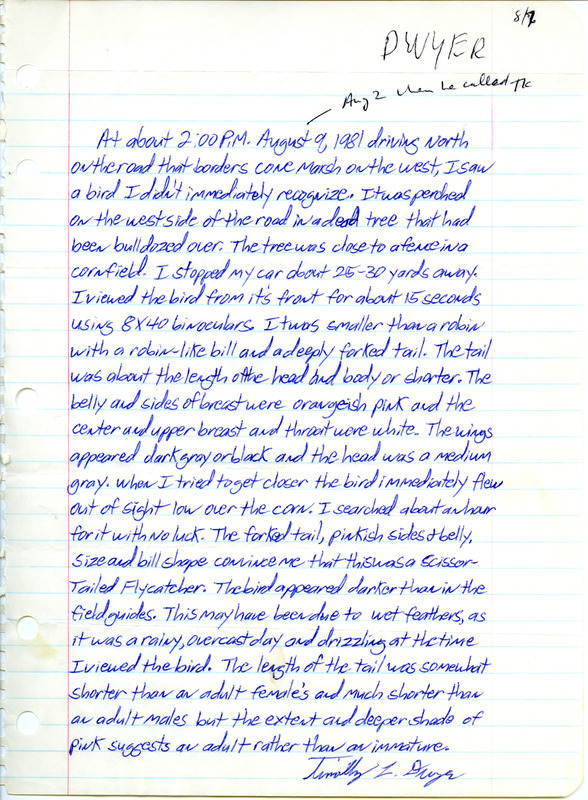 8/9
DWYER
Aug 2 when he called TK
At about 2:00 P.M. August 9, 1981 driving North
on the road that borders Cone Marsh on the west, I saw
a bird I didn't immediately recognize. It was perched
on the west side of the road in a dead tree that had
been bulldozed over. The tree was close to a fence in a
cornfield. I stopped my car about 25-30 yards away.
I viewed the bird from it's front for about 15 seconds
using 8X40 binoculars. It was smaller than a robin
with a robin-like bill and a deeply forked tail. The tail
was about the length of the head and body or shorter. The
belly and sides of breast were orangeish pink and the
center and upper breast and throat were white. The wings
appeared dark gray or black and the head was a medium
gray. When I tried to get closer the bird immediately flew
out of sight low over the corn. I searched about an hour
for it with no luck. The forked tail, pinkish sides & belly,
size and bill shape convince me that this was a Scissor-
Tailed Flycatcher. The bird appeared darker than in the
field guides. This may have been due to wet feathers, as
it was a rainy, overcast day and drizzling at the time
I viewed the bird. The length of the tail was somewhat
shorter than an adult female's and much shorter than
an adult males but the extent and deeper shade of
pink suggests an adult rather than an immature.
Timothy L. Dwyer